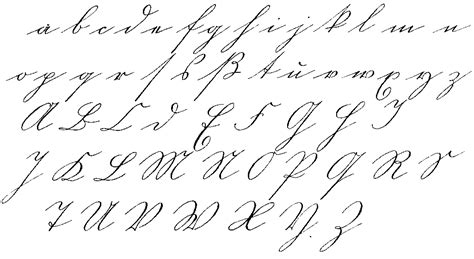 a b c d e f g h i j k l m n
o p q r ſ s ß t u v w x y z
A B C D E F G H I
J K L M N O P Q R S
T U V W X Y Z